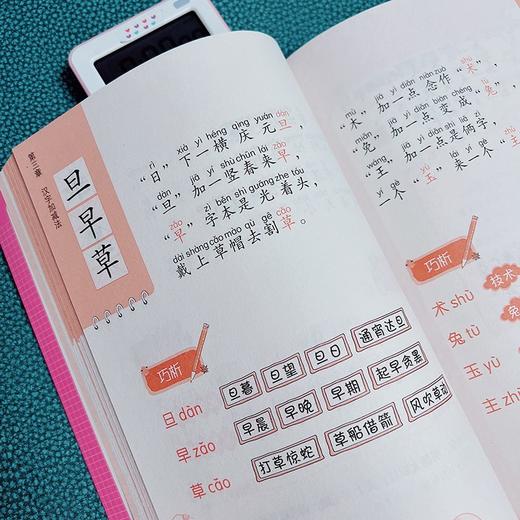 第三章 汉字加减法
旦
早
草
rì xià yì héng qìng yuán dàn
“日”下一横庆元旦，
dàn jiā yí shù chūn lái zǎo
“旦”加一竖春来早，
zǎo zì běn shì guāng zhe tóu
“早”字本是光着头，
dài shàng cǎo mào qù gē cǎo
戴上草帽去割草。
巧析
旦 dàn
旦暮 旦望 旦日 通宵达旦
早 zǎo
早晨 早晚 早期 起早贪黑
草 cǎo
打草惊蛇 草船借箭 风吹草动
mù jiā yì diǎn niàn zuò shù
“木”加一点念作“术”，
miǎn jiā yì diǎn biàn chéng tù
“免”加一点变成“兔”，
wáng jiā yì diǎn shì liǎ zì
“王”加一点是俩字，
yí gè yù lái yí gè
一个“玉”来一个“
巧析
技术
兔
术 shù
兔 tù
玉 yù
主 zh